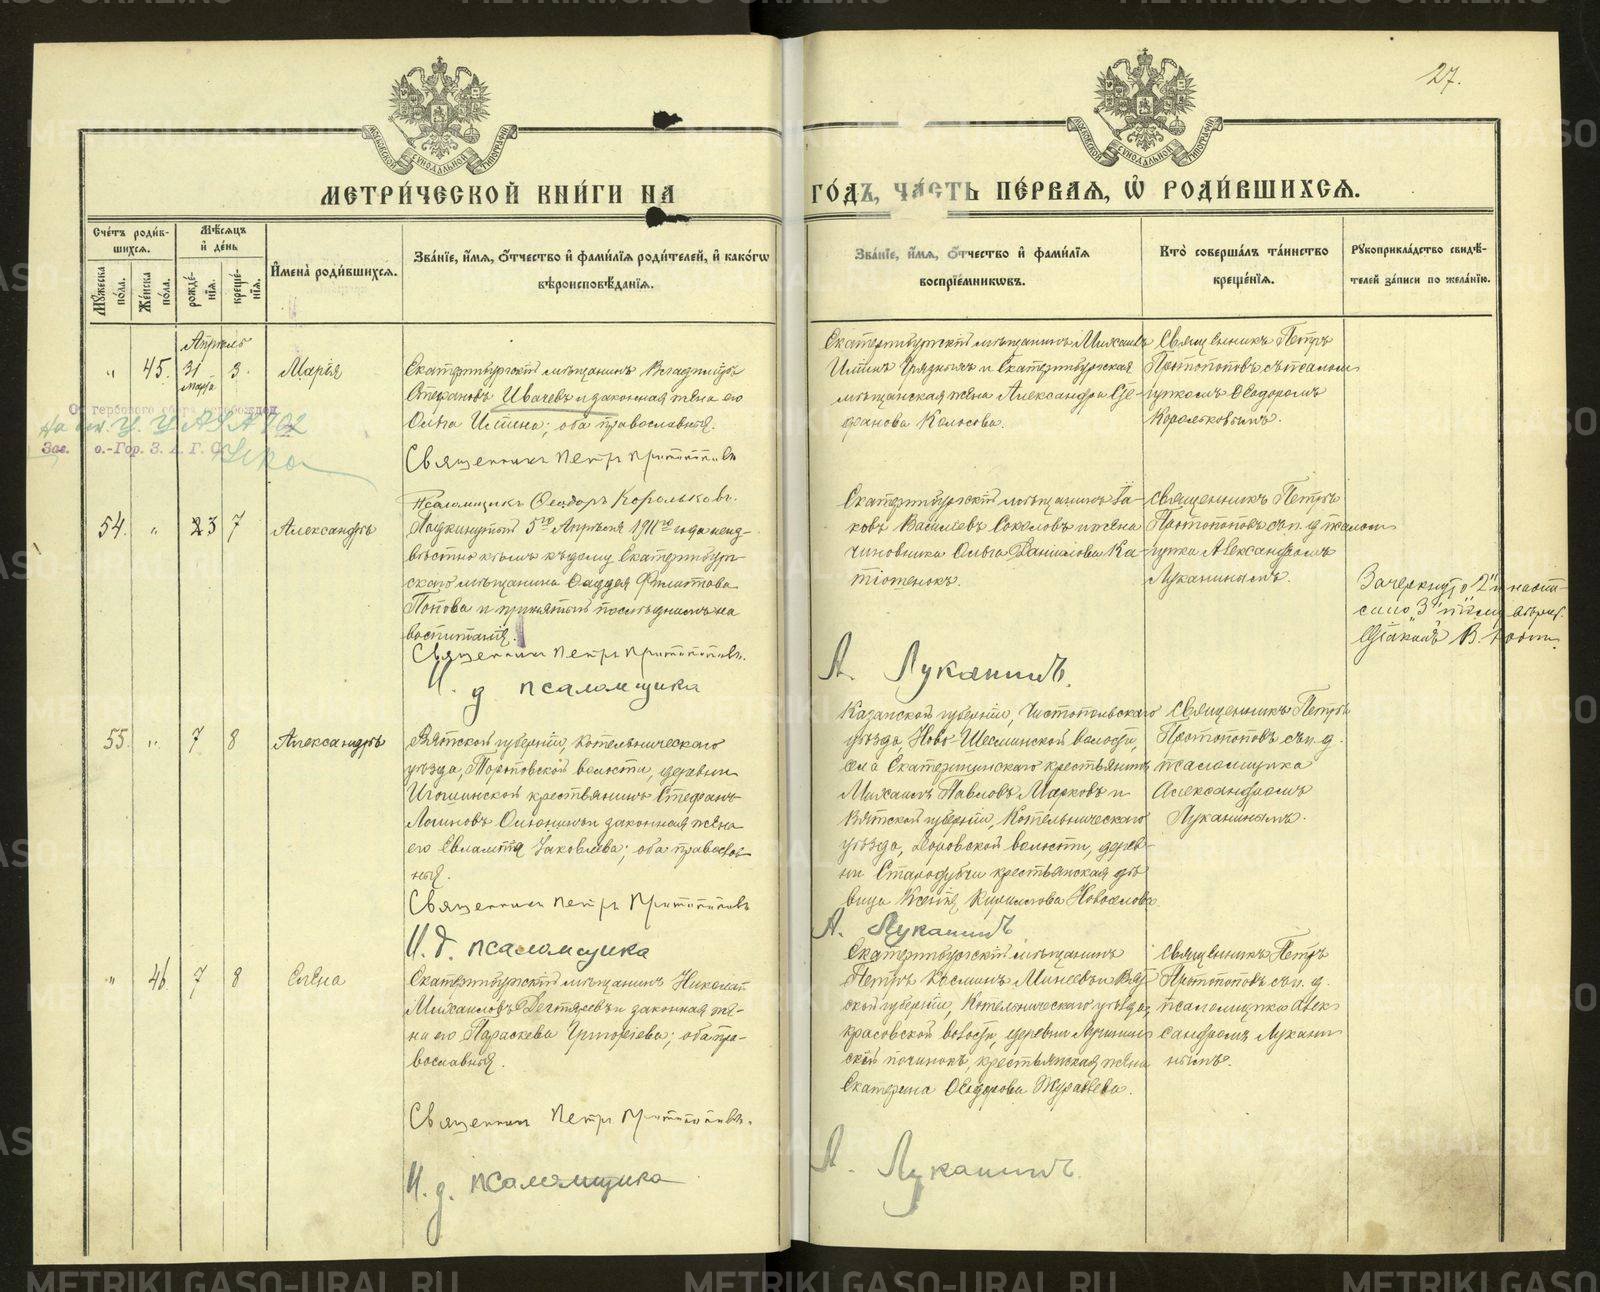 27.
МЕТРИ́ЧЕСКОЙ КНИ́ГИ НА ГО́ДЪ, ЧА́СТЬ ПЕ́РВАЯ, Ѡ҆ РОДИ́ВШИХСЯ.
Сче́тъ роди́в-
шихся.
Мѣ́сяцъ
и҆ де́нь
Мꙋ́жеска
по́ла.
Же́нска
по́ла.
рожде́-
нїя.
креще́-
нїя.
И҆мена̀ роди́вшихся.
Зва́нїе, и҆́мя, ѻ҆́тчество и҆ фами́лїя роди́телей, и҆ како́гѡ
вѣроисповѣ́данїя.
Зва́нїе, и҆́мя, ѻ҆́тчество и҆ фами́лїя
воспрїе́мникѡвъ.
Кто̀ соверша́лъ та́инство
креще́нїя.
Рꙋкоприкла́дство свидѣ́-
телей за́писи по жела́нїю.
Апрѣль
" 45. 31 марта 3. Марія
Екатеринбургскій мѣщанинъ Владиміръ
Степановъ Ивачевъ и законная жена его
Ольга Ильина; оба православныя.
Священникъ Петръ Протопоповъ
Псаломщикъ Ѳеодоръ Корольковъ.
Екатеринбургскій мѣщанинъ Михаилъ
Ильинъ и Екатеринбургская
мѣщанская жена Александра Сте-
фанова Колосова.
Священникъ Петръ
Протопоповъ съ псалом-
щикомъ Ѳеодоромъ
Корольковымъ.
От гербового сбора освобожден
о.-Гор. З. А. Г. С.
54. " 23 7 Александръ
Подкинутый 5го Апрѣля 1911го года неиз-
вѣстно кѣмъ къ дому Екатеринбург-
скаго мѣщанина Ѳаддея Филиппова
Попова и принятый послѣднимъ на
воспитаніе.
Священникъ Петръ Протопоповъ.
И. д псаломщика
Екатеринбургскій мѣщанинъ Іа-
ковъ Васильевъ Соколовъ и жена
чиновника Ольга Даніилова Ка-
тютенокъ.
А. Луканинъ.
Священникъ Петръ
Протопоповъ съ и. д псалом-
щика Александромъ
Луканинымъ.
Зачеркнуто "2" и напи-
сано "3"
Діаконъ В.
55. " 7 8 Александръ
Вятской губерніи, Котельническаго
уѣзда, Тороповской волости, деревни
Игошинской крестьянинъ Стефанъ
Логиновъ и законная жена
его Евлампія Іаковлева; оба православ-
ныя.
Священникъ Петръ Протопоповъ
И. д. псаломщика
Казанской губерніи, Чистопольскаго
уѣзда, Ново Шешминской волости,
села Екатерининскаго крестьянинъ
Михаилъ Павловъ Марковъ и
Вятской губерніи, Котельническаго
уѣзда, волости, дерев-
ни Стародубцы крестьянская дѣ-
вица Ксенія Кириллова Новоселова.
А. Луканинъ
Священникъ Петръ
Протопоповъ съ и. д.
псаломщика
Александромъ
Луканинымъ.
" 46. 7 8 Елена
Екатеринбургскій мѣщанинъ Николай
Михаиловъ Дегтяревъ и законная же-
на его Параскева Григорьева; оба пра-
вославныя.
Священникъ Петръ Протопоповъ.
И. д. псаломщика
Екатеринбургскій мѣщанинъ
Петръ Косминъ Минеевъ и Вят-
ской губерніи, Котельническаго уѣзда,
красовской волости, деревни
скій починокъ, крестьянская жена
Екатерина Ѳеодорова Журавлева.
А. Луканинъ.
Священникъ Петръ
Протопоповъ съ и. д.
псаломщика Алек-
сандромъ Лукани-
нымъ.
METRIKI.GASO-URAL.RU